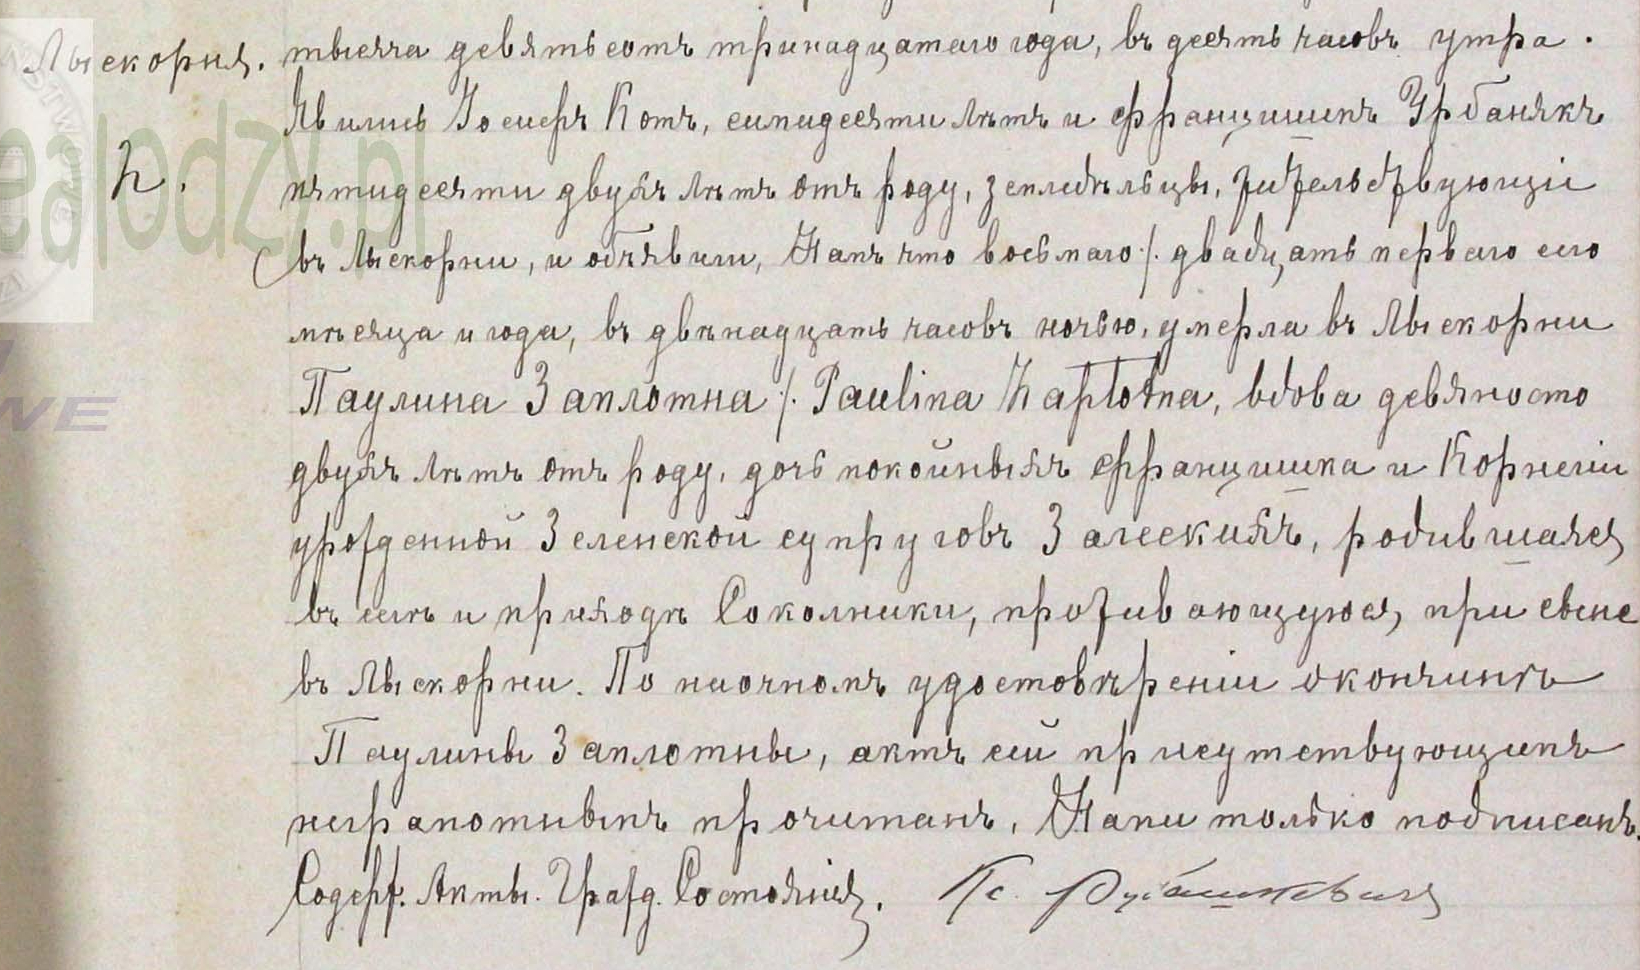 Лыскорня. тысяча девятьсотъ тринадцатаго года, въ десять часовъ утра.
Явились Іосифъ Котъ, семидесяти лѣтъ и Францишекъ Урбанякъ
h. пятидесяти двухъ лѣтъ отъ роду, земледѣльцы, жительствующіе
въ Лыскорни, и объявили, Намъ что восьмаго /. двадцать перваго сего
мѣсяца и года, въ двѣнадцать часовъ ночью, умерла въ Лыскорни
Паулина Заплотна /. Paulina Zapłotna, вдова девяносто
двухъ лѣтъ отъ роду, дочь покойныхъ Францишка и Корнеліи
урожденной Зеленской супруговъ Залескихъ, родившаяся
въ селѣ и приходѣ Соколники, проживающуюся, при сыне
въ Лыскорни. По наочномъ удостовѣреніи о кончинѣ
Паулины Заплотны, актъ сей присутствующимъ
неграмотнымъ прочитанъ, Нами только подписанъ.
Содерж. Акты. Гражд. Состоянія. Кс.